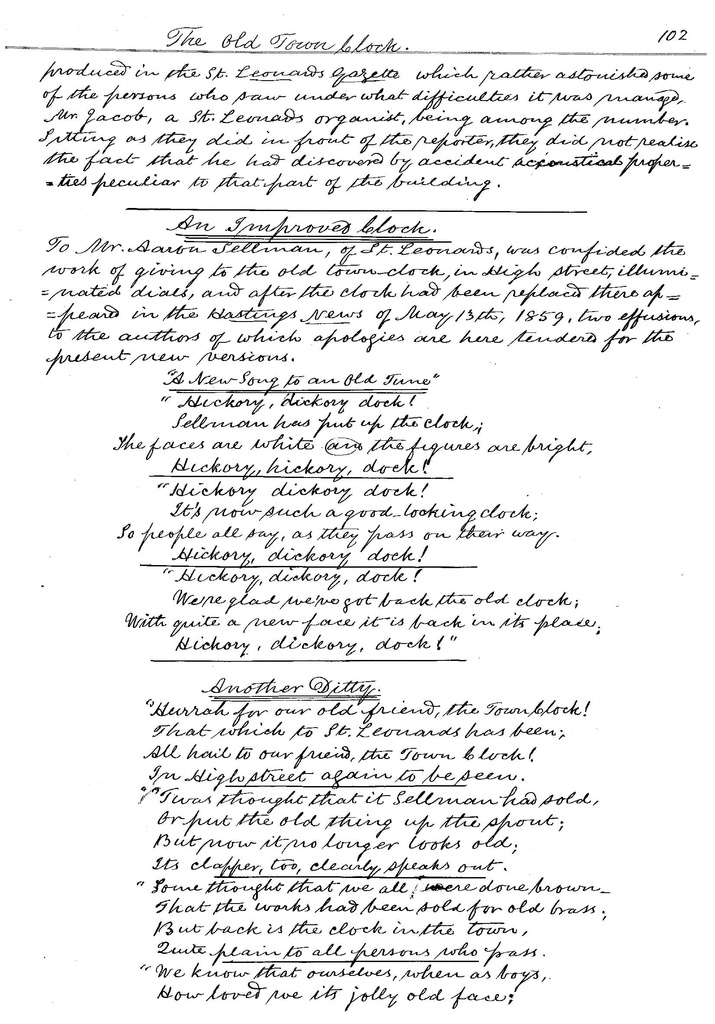 The Old Town Clock. 102
produced in the St. Leonards Gazette which rather astonished some
of the persons who saw under what difficulties it was managed,
Mr. Jacob, a St. Leonads organist, being among the number.
Sitting as they did in front of the reporter, they did not realise
the fact that he had discovered by accident accoustical proper=
=ties peculiar to that part of the building.
An Improved Clock.
To Mr. Aaron Sellman, of St. Leonards, was confided the
work of giving to the old town-clock, in High street, illumi=
=nated dials, and after the clock had been replaced there ap=
=peard in the Hastings News of May 13th, 1859, two effusions,
to the authors of which apologies are here tendered for the
present new versions.
"A New Song to an Old Tune"
"Hickory, dickory dock!
Sellman has put up the clock;
The faces are white and the figures are bright,
Hickory, hickory, dock!
"Hickory dickory dock!
It's now such a good-looking clock;
So people all say, as they pass on their way.
Hickory, dickory dock!
"Hickory, dickory, dock!
We're glad we've got back the old clock;
With quite a new face it is back in its place;
Hickory, dickory, dock!"
Another Ditty.
"Hurrah for our old friend, the Town Clock!
That which to St. Leonards has been;
All hail to our friend, the Town Clock!
In High street again to be seen.
"'Twas thought that it Sellman had sold,
Or put the old thing up the spout;
But now it no longer looks old;
Its clapper, too, clearly speaks out.
"Some thought that we all were done brown–
That the works had been sold for old brass;
But back is the clock in the town,
Quite plain to all persons who pass.
"We know that ourselves, when as boys,
How loved we its jolly old face;